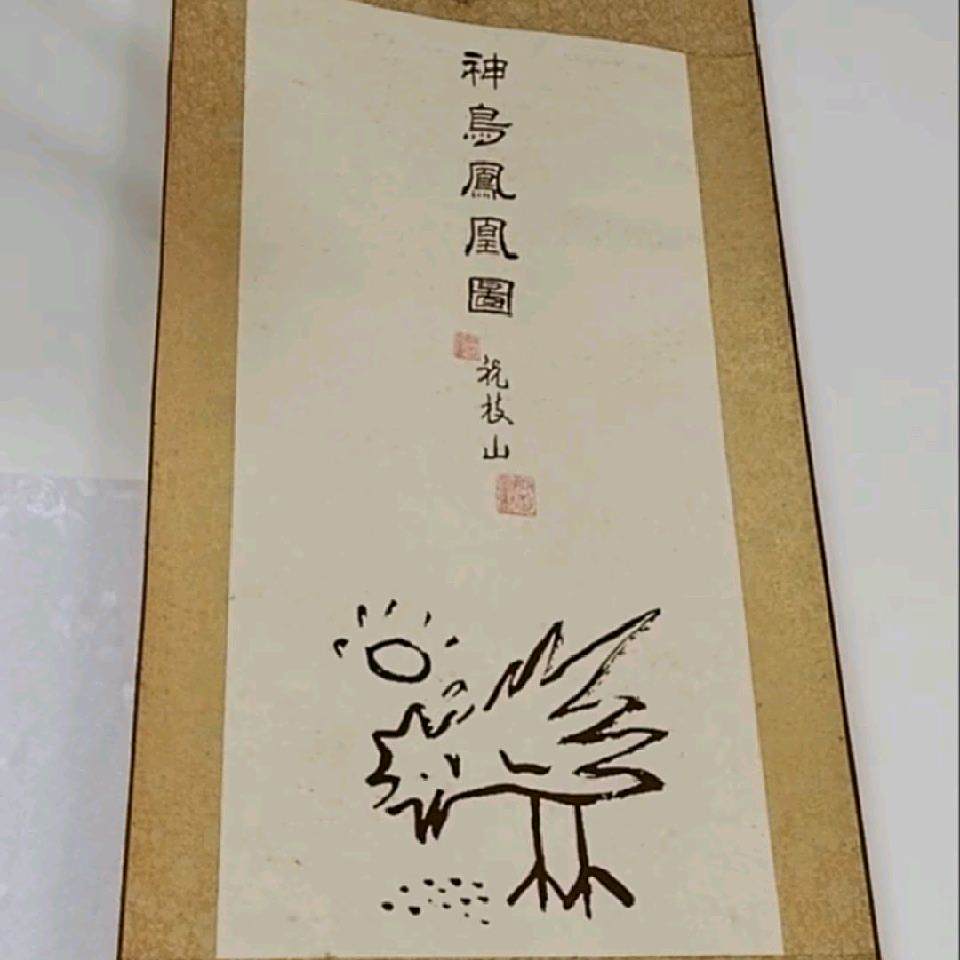 神鳥鳳凰圖
祝枝山